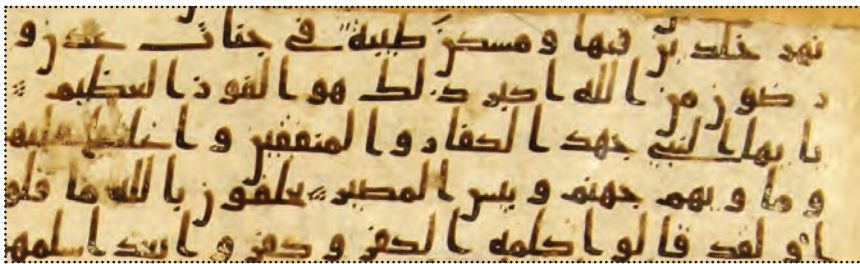 نهر خلدين فيها ومسكن طيبة في جنات عدن و
رضون من الله اكبر ذلك هو الفوز العظيم
يايها النبي جهد الكفار والمنفقين واغلظ عليهم
وماويهم جهنم وبيس المصير يحلفون بالله ما قلو
ا ولقد قالوا كلمة الكفر وكفروا بعد اسلمهم